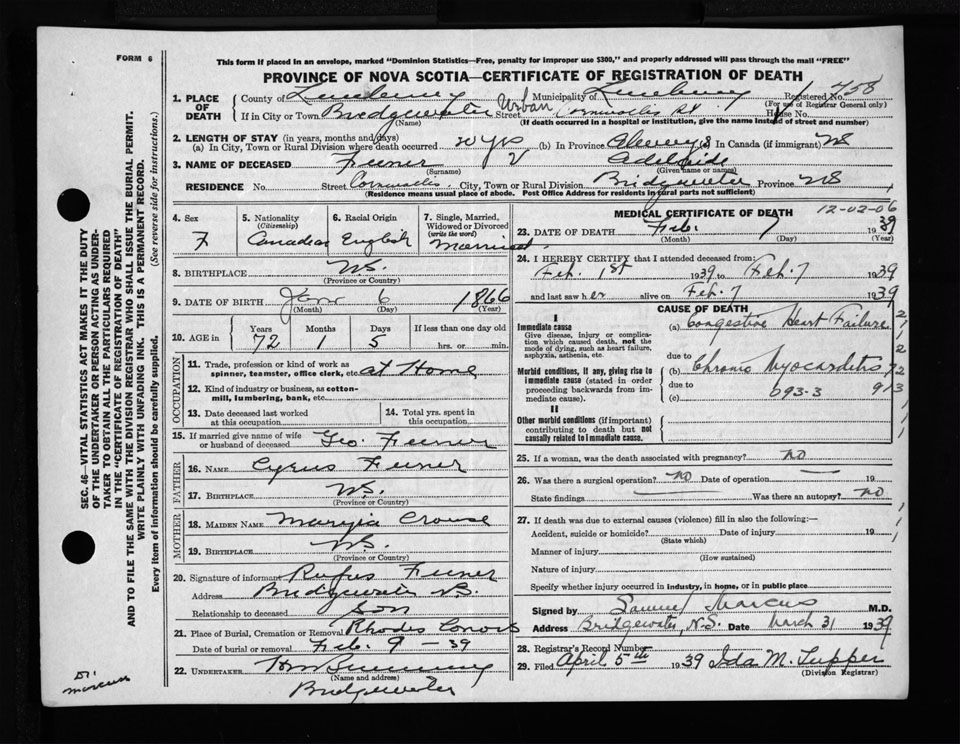 FORM 6
This form if placed in an envelope, marked "Dominion Statistics—Free, penalty for improper use $300," and properly addressed will pass through the mail "FREE"
PROVINCE OF NOVA SCOTIA—CERTIFICATE OF REGISTRATION OF DEATH
1. PLACE OF DEATH
County of Lunenburg Municipality of Lunenburg Registered No. 458
(For use of Registrar General only)
If in City or Town Bridgewater Urban Street Cornwallis St. House No.
(Name) (If death occurred in a hospital or institution, give the name instead of street and number)
2. LENGTH OF STAY (in years, months and days)
(a) In City, Town or Rural Division where death occurred 20 yrs (b) In Province Always (c) In Canada (if immigrant) NS
3. NAME OF DECEASED Feener Adelaide
(Surname) (Given name or names)
RESIDENCE No. Street Cornwallis City, Town or Rural Division Bridgewater Province NS
(Residence means usual place of abode. Post Office Address for residents in rural parts not sufficient)
4. Sex F
5. Nationality (Citizenship) Canadian
6. Racial Origin English
7. Single, Married, Widowed or Divorced (write the word) Married
8. BIRTHPLACE N.S.
(Province or Country)
9. DATE OF BIRTH Jan 6 1866
(Month) (Day) (Year)
10. AGE in Years 72 Months 1 Days 5 If less than one day old
hrs. or min.
OCCUPATION
11. Trade, profession or kind of work as spinner, teamster, office clerk, etc. at Home
12. Kind of industry or business, as cotton-mill, lumbering, bank, etc.
13. Date deceased last worked at this occupation
14. Total yrs. spent in this occupation
15. If married give name of wife or husband of deceased Geo. Feener
FATHER
16. NAME Cyrus Feener
17. BIRTHPLACE N.S.
(Province or Country)
MOTHER
18. MAIDEN NAME Crouse
19. BIRTHPLACE N.S.
(Province or Country)
20. Signature of informant Rufus Feener
Address Bridgewater N.S.
Relationship to deceased Son
21. Place of Burial, Cremation or Removal Rhodes Corner
Date of burial or removal Feb. 9 - 39
22. UNDERTAKER
(Name and address)
Bridgewater
MEDICAL CERTIFICATE OF DEATH 12-02-06
23. DATE OF DEATH Feb. 7 1939
(Month) (Day) (Year)
24. I HEREBY CERTIFY that I attended deceased from:
Feb. 1st 1939 to Feb. 7 1939
and last saw her alive on Feb. 7 1939
CAUSE OF DEATH
I
Immediate cause
Give disease, injury or complication which caused death, not the mode of dying, such as heart failure, asphyxia, asthenia, etc.
(a) Congestive Heart Failure
due to
Morbid conditions, if any, giving rise to immediate cause (stated in order proceeding backwards from immediate cause).
(b) Chronic Myocarditis
due to
(c) 093-3
II
Other morbid conditions (if important) contributing to death but not causally related to immediate cause.
25. If a woman, was the death associated with pregnancy? no
26. Was there a surgical operation? no Date of operation 19
State findings Was there an autopsy? no
27. If death was due to external causes (violence) fill in also the following:—
Accident, suicide or homicide? Date of injury 19
(State which)
Manner of injury
(How sustained)
Nature of injury
Specify whether injury occurred in industry, in home, or in public place
Signed by Samuel Marcus M.D.
Address Bridgewater, N.S. Date March 31 1939
28. Registrar's Record Number
29. Filed April 5th 1939 Ida M. Tupper
(Division Registrar)
Dr. Marcus
SEC. 46—VITAL STATISTICS ACT MAKES IT THE DUTY
OF THE UNDERTAKER OR PERSON ACTING AS UNDER-
TAKER TO OBTAIN ALL THE PARTICULARS REQUIRED
IN THE "CERTIFICATE OF REGISTRATION OF DEATH"
AND TO FILE THE SAME WITH THE DIVISION REGISTRAR WHO SHALL ISSUE THE BURIAL PERMIT.
WRITE PLAINLY WITH UNFADING INK. THIS IS A PERMANENT RECORD.
Every item of information should be carefully supplied. (See reverse side for instructions.)